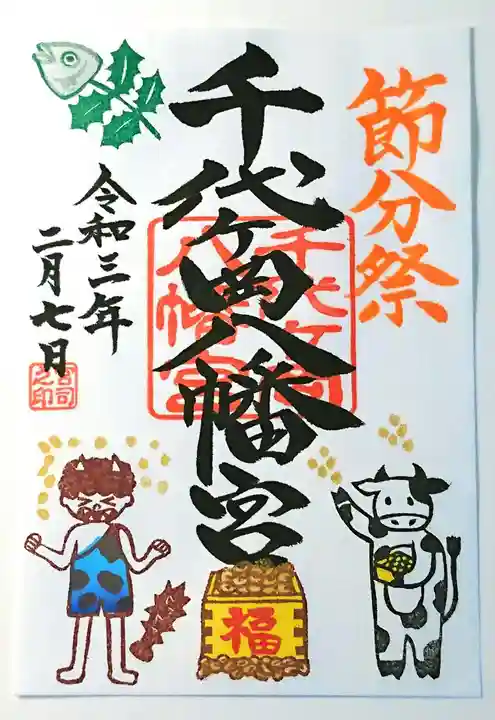 節分祭
千代ケ岡八幡宮
千代ケ岡
八幡宮
令和三年
二月七日
宮司
之印
福